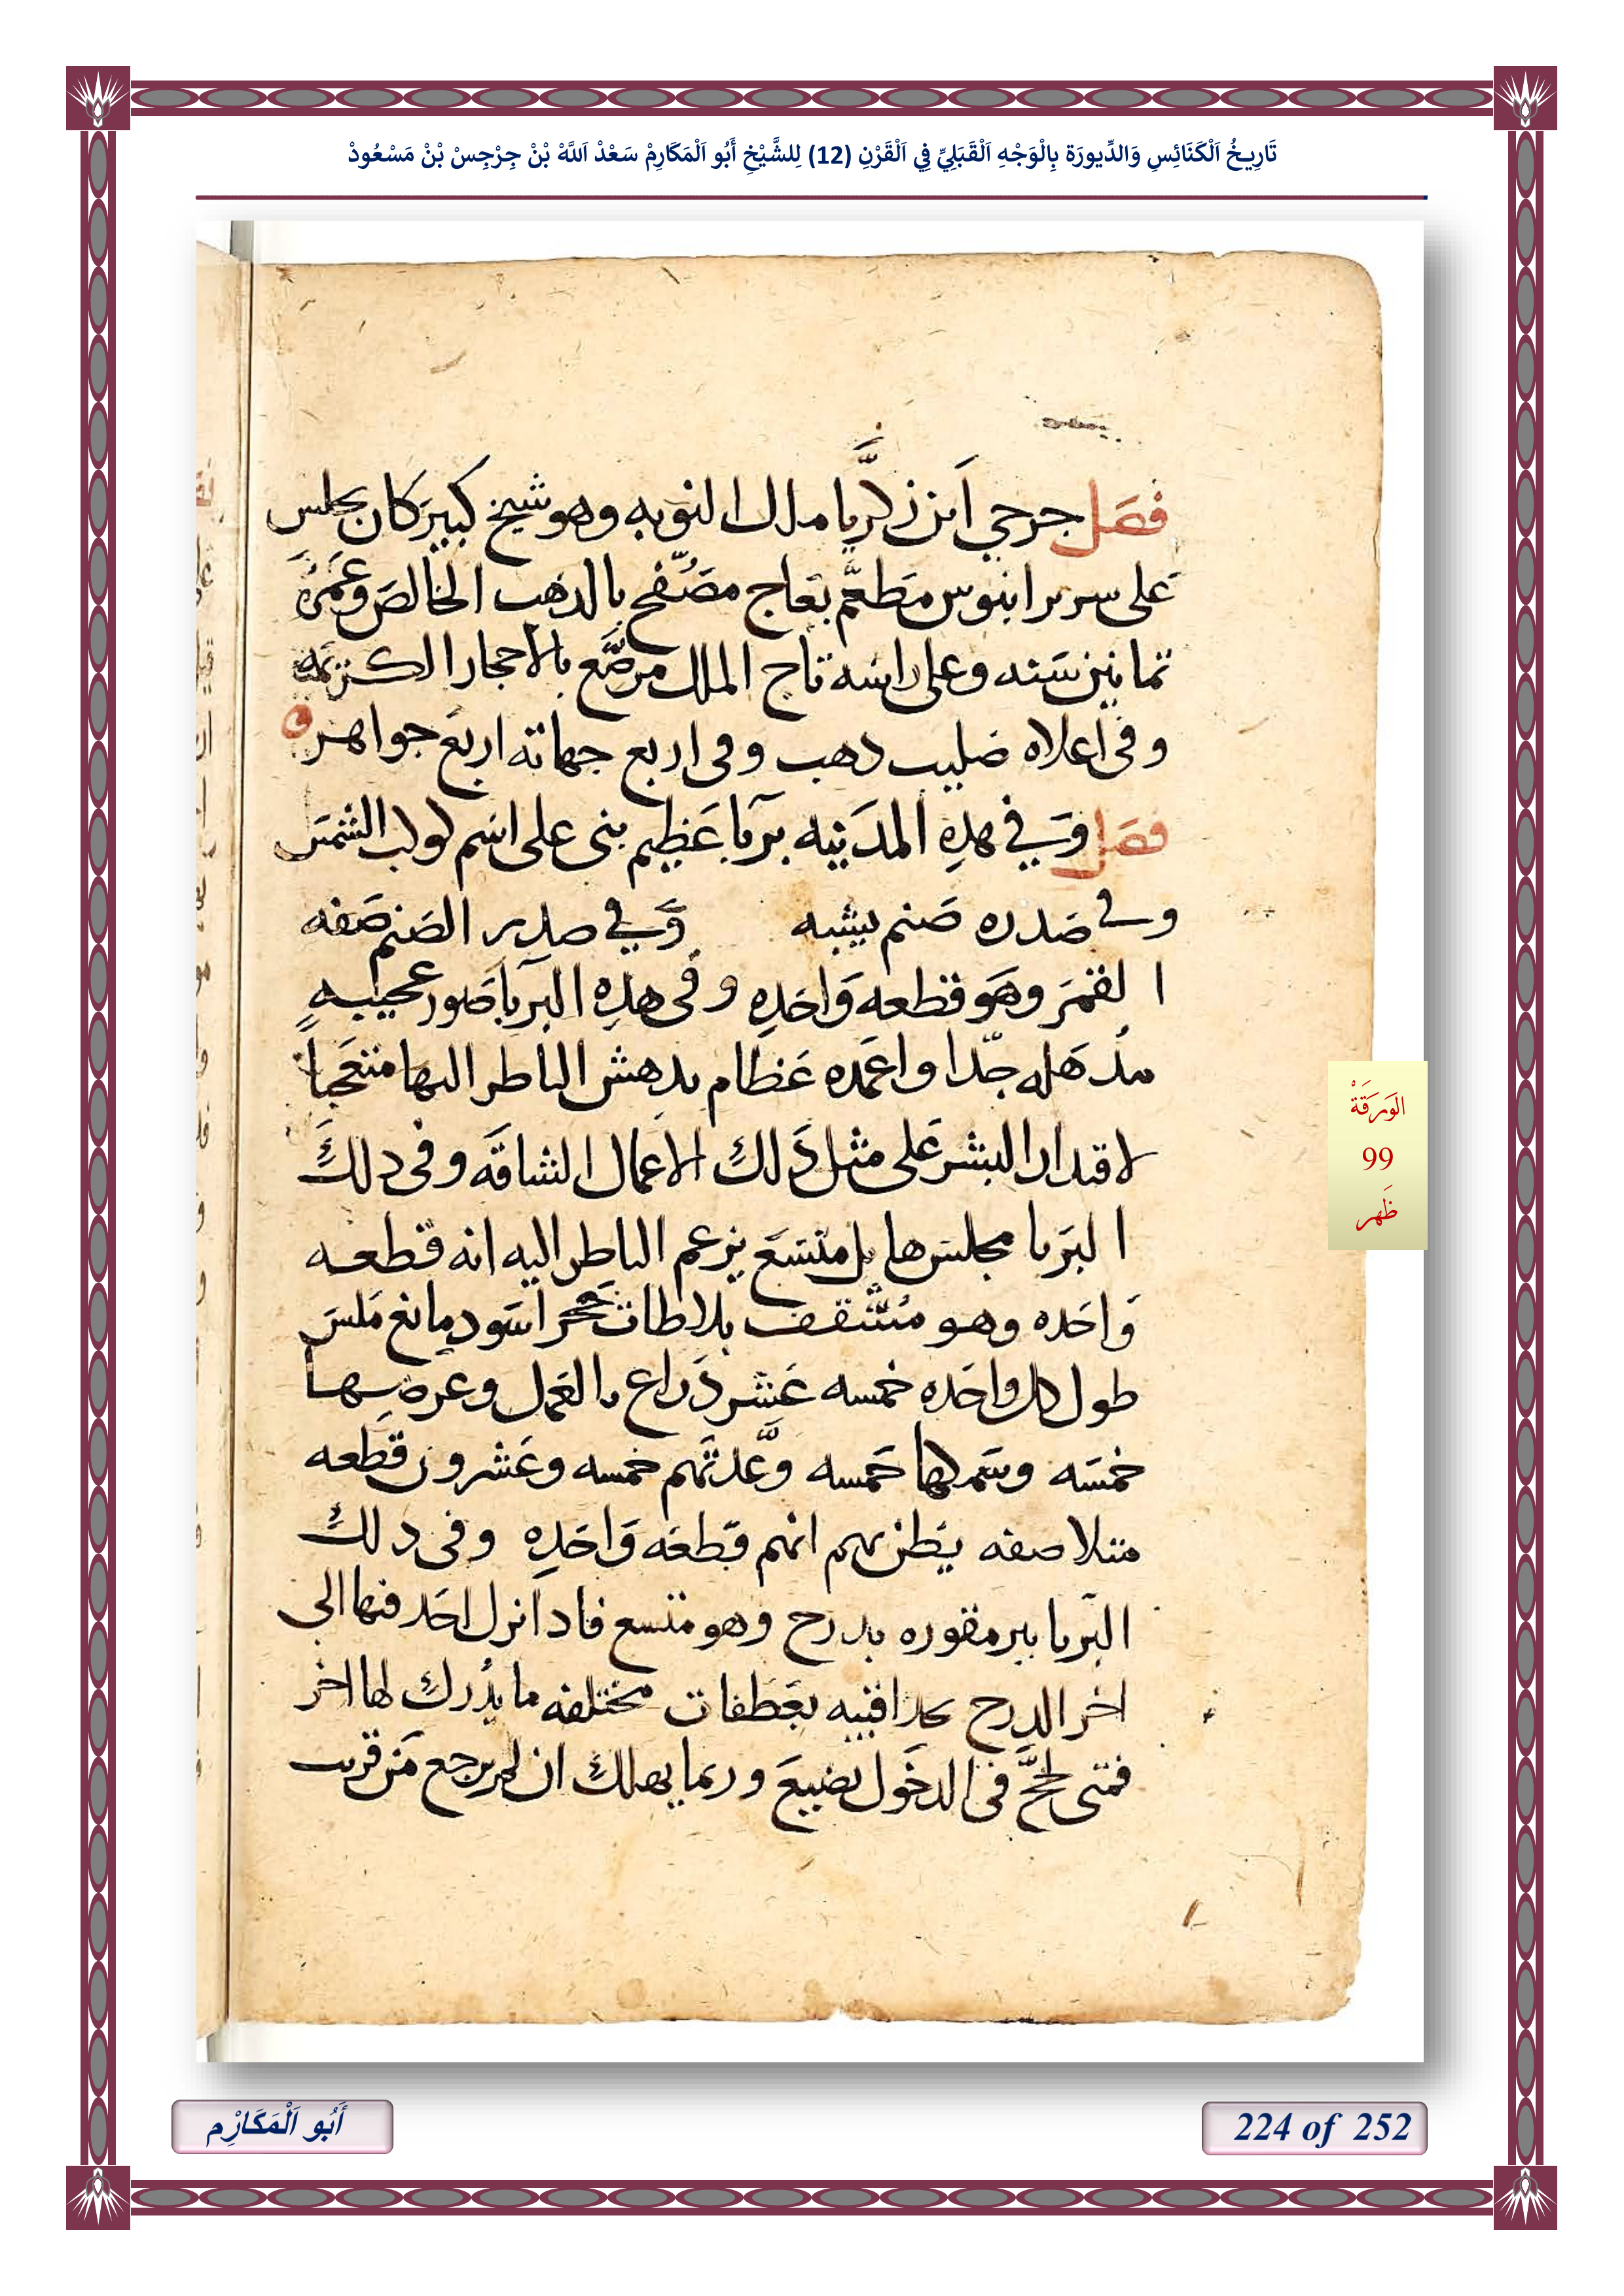 تَارِيخُ اَلْكَنَائِسِ وَالدِّيورَة بِالْوَجْهِ اَلْقَبَلِيِّ فِي اَلْقَرْنِ (12) لِلشَّيْخِ أَبُو اَلْمَكَارِمْ سَعْدْ اَللَّهْ بْنْ جِرْجِسْ بْنْ مَسْعُودْ
فصل جرجي ابن زكريا ملك النوبه وهو شيخ كبير كان يجلس
على سرير ابنوس مطعم بعاج مصفح بالدهب الخالص وعمره
تمانين سنه وعلى راسه تاج الملك مرصع بالاحجار الكريمه
وفى اعلاه صليب دهب وفى اربع جهاته اربع جواهر
فصل وفي هذه المدينه بربا عظيم بنى على اسم كوكب الشمس
وفى صدره صنم يشبه وفي صدر الصنم صفه
القمر وهو قطعه واحده وفى هذه البربا صور عجيبه
مذهله جدا واعمده عظام يدهش الناظر اليها متعجباً
لاقتدار البشر على مثل ذلك الاعمال الشاقه وفى دلك
البربا مجلس هايل متسع يزعم الناظر اليه انه قطعه
واحده وهو مسقف بلاطات حجر اسود مانع ملس
طول كل واحده خمسه عشر ذراع بالعمل وعرضها
خمسه وسمكها خمسه وعدتهم خمسه وعشرون قطعه
متلاصقه يظن بهم انهم قطعه واحده وفى دلك
البربا بير مقوره بدرج وهو متسع فادا نزل احد فيها الى
اخر الدرج يجد اقبيه بعطفات مختلفه ما يدرك لها اخر
فمتى لجج فى الدخول يضيع وربما يهلك ان لم يرجع من قريب
اَلْوَرَقَةْ
99
ظَهر
أَبُو اَلْمَكَارِْم
224 of 252